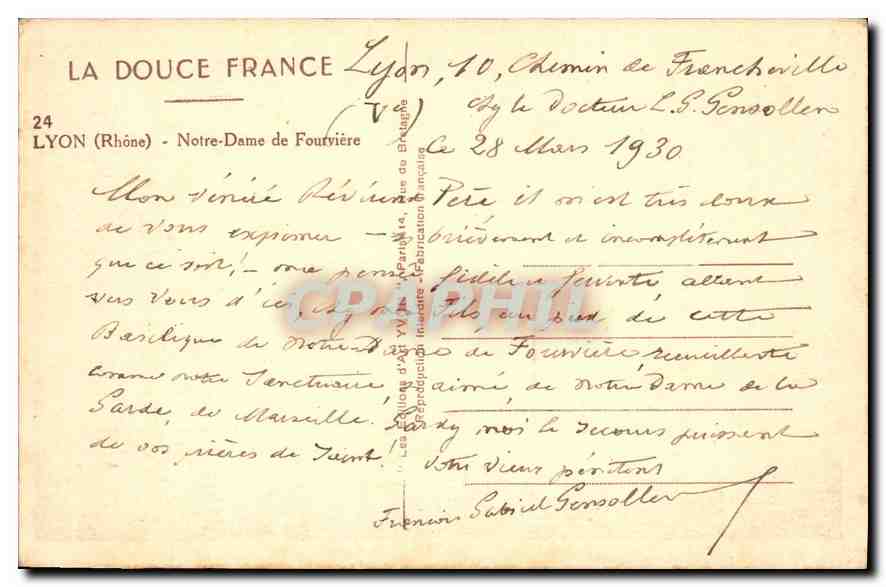 LA DOUCE FRANCE
24
LYON (Rhône) - Notre-Dame de Fourvière
Lyon, 10, Chemin de Francheville
(Ve)
le Docteur L. G. Gensollen
Ce 28 Mars 1930
Mon vénéré Révérend Père il m'est très doux
de vous exprimer brièvement et incomplètement
que ce soit! - ma pensée fidèle allant
vers vous d'ici, mon Fils, au pied de cette
Basilique de Notre Dame de Fourvière recueillante
comme notre Sanctuaire aimé de Notre Dame de la
Garde, de Marseille. Gardez moi le secours puissant
de vos prières de Saint!
votre vieux pénitent
François Gabriel Gensollen
Les Editions d'Art YVON, Paris-14, rue de Bretagne
Reproduction Interdite - Fabrication française
CPAPHIL